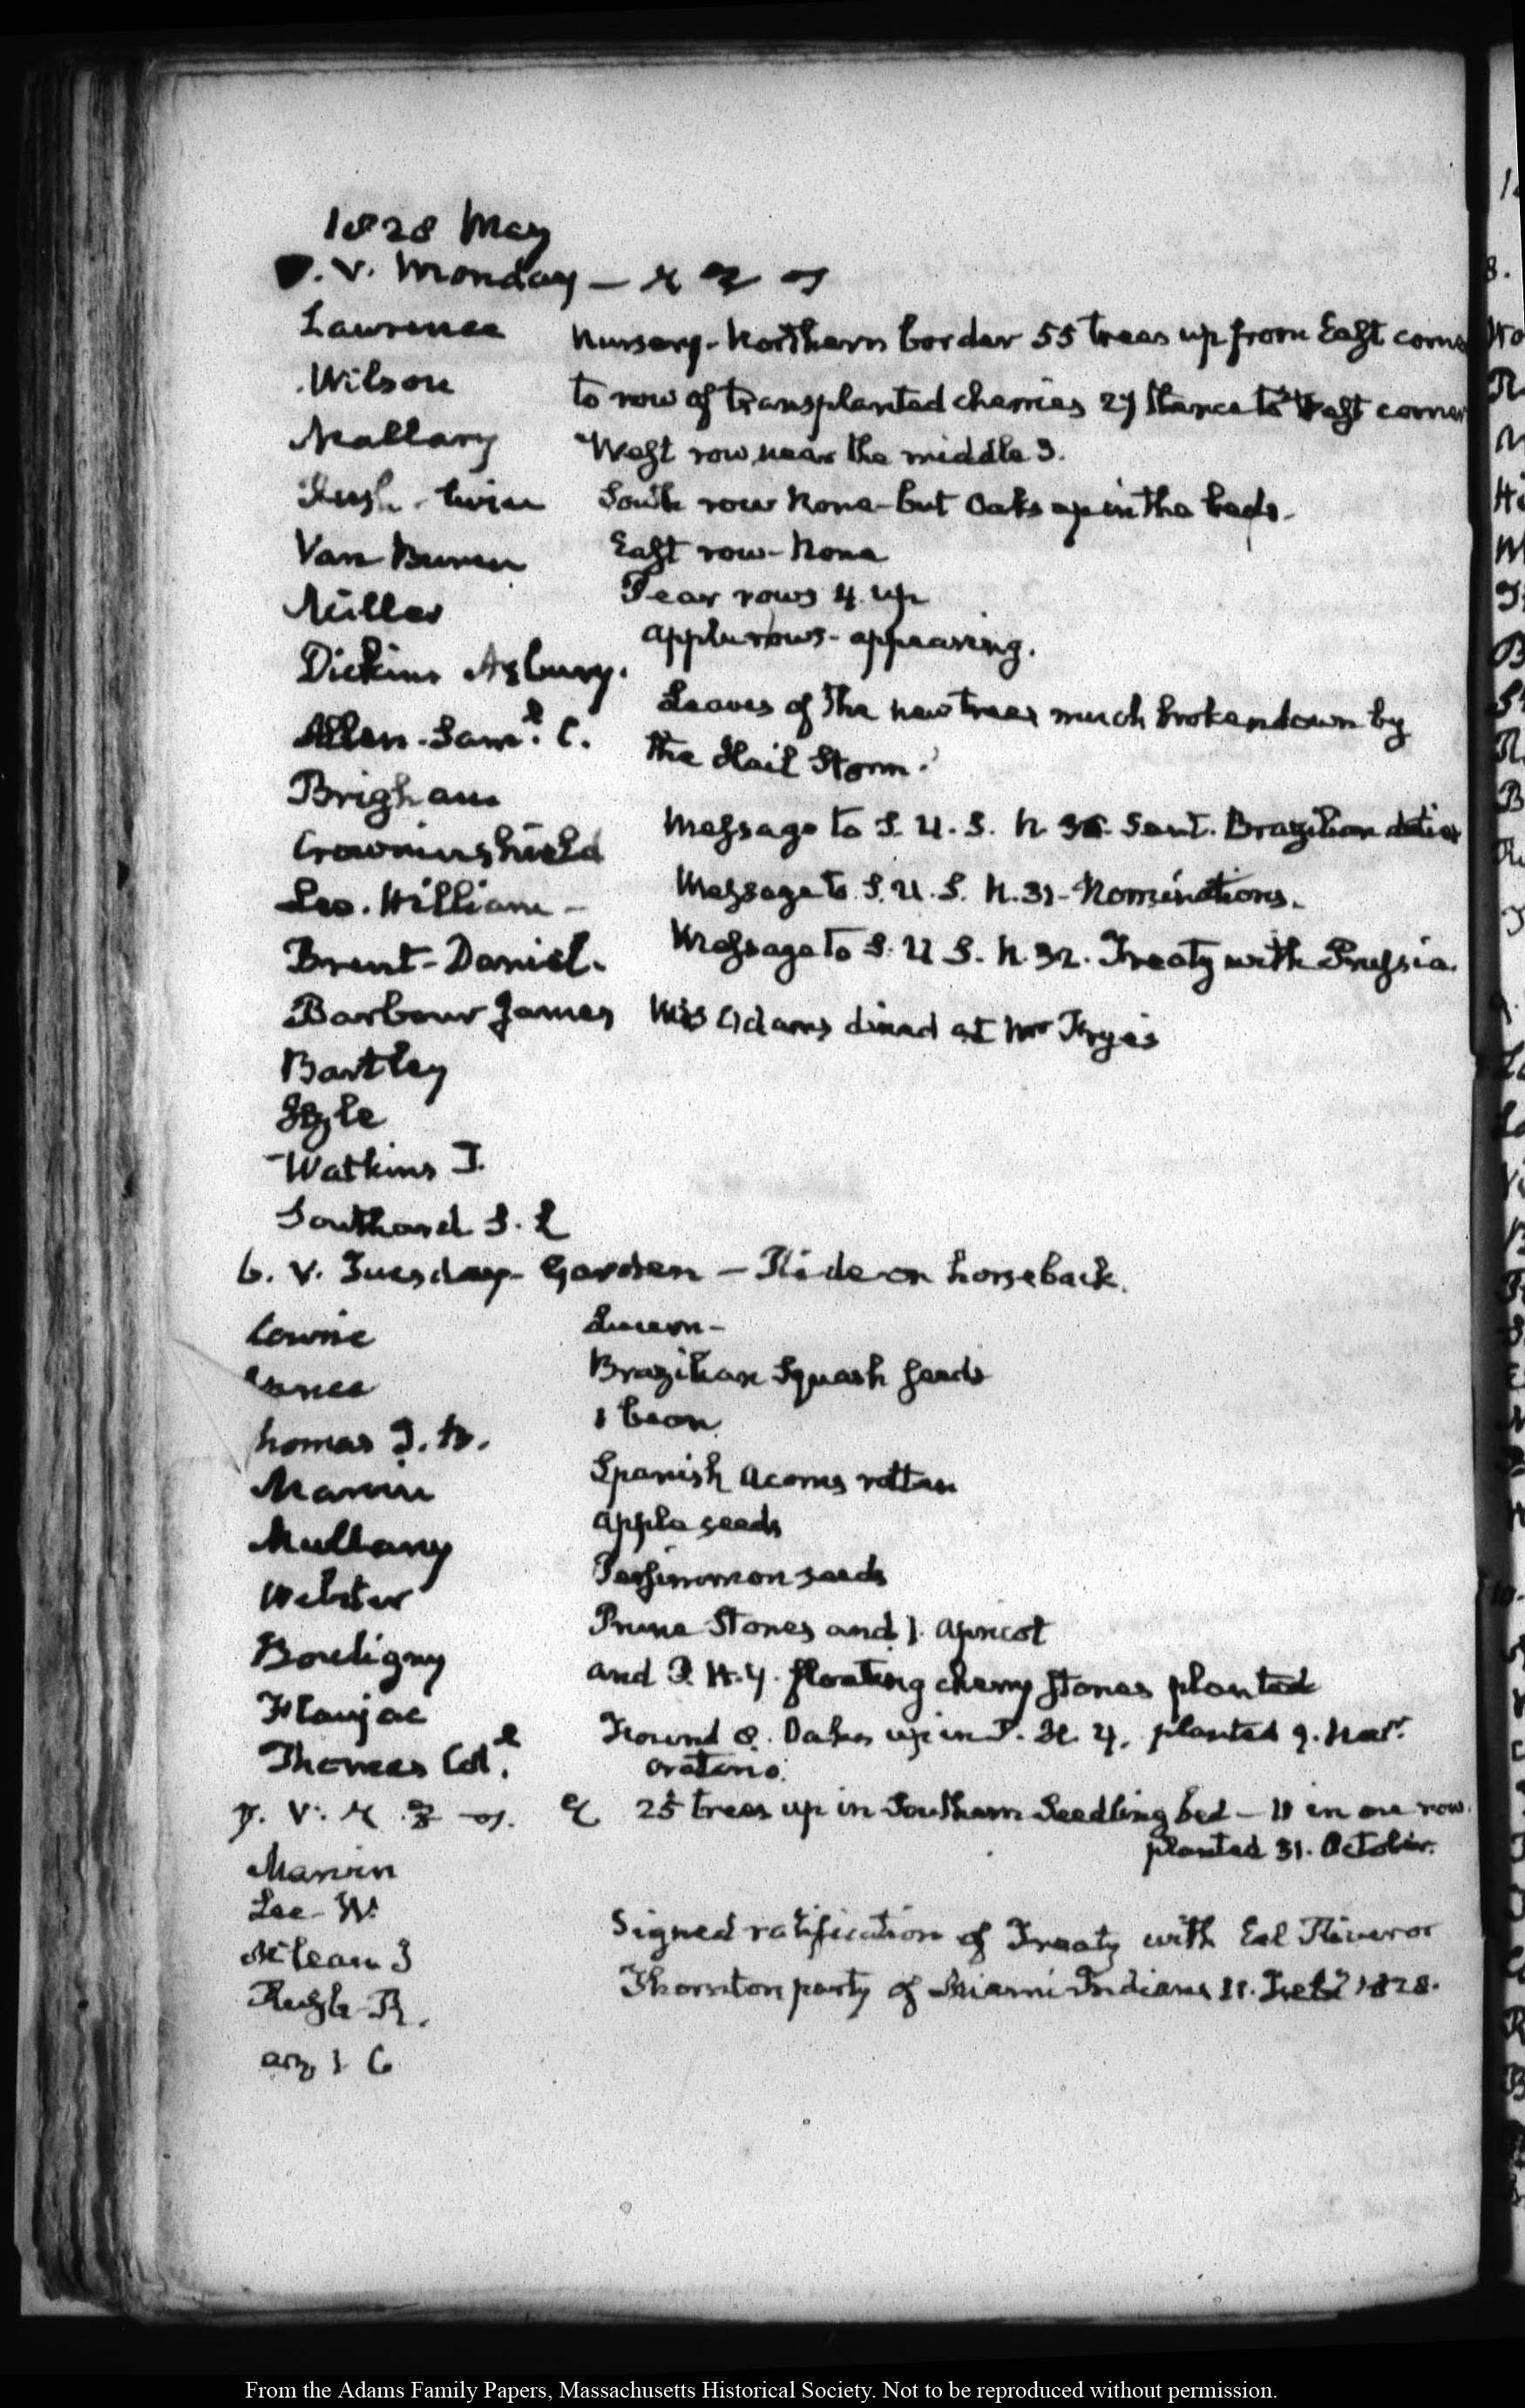 1828 May
V. Monday –
Lawrence
Wilson
Mallary
Rush - twice
Van Buren
Miller
Dickins Asbury.
Allen - Saml. C.
Brigham
Crowninshield
Lee. William -
Brent - Daniel.
Barbour James
Bartley
Lyle
Watkins T.
Southard S. L
Nursery - Northern border 55 trees up from East corne
to row of transplanted cherries 27 thence to West corner
West row near the middle 3.
South row None - but Oaks up in the beds -
East row - None
Pear rows 4 up
apple rows - appearing.
Leaves of the new trees much broken down by
the Hail Storm.
Message to S. U. S. N. Sent. Brazilian
Message to S. U. S. N. 31 - Nominations.
Message to S. U. S. N. 32. Treaty with Prussia.
Mrs Adams dined at Mr Frye's
6. V. Tuesday - Garden – Ride on horseback.
Lowrie
Vance
homas J. B.
Marvin
Mullany
Webster
Bouligny
Flaujac
Thomas Col.
Lucern -
Brazilian Squash seeds
1 bean
Spanish Acorns rotten
apple seeds
Persimmon seeds
Prune Stones and 1. apricot
and P. H. 4. floating cherry stones planted
Found 8. Oaks up in P. H. 4. planted 9. Novr.
7. V.
25 trees up in Southern Seedling bed – 11 in one row.
planted 31. October.
Marvin
Lee - W.
McLean J
Rush - R.
Signed ratification of Treaty with Eel River or
Thornton party of Miami Indians 11. Feby 1828.
From the Adams Family Papers, Massachusetts Historical Society. Not to be reproduced without permission.